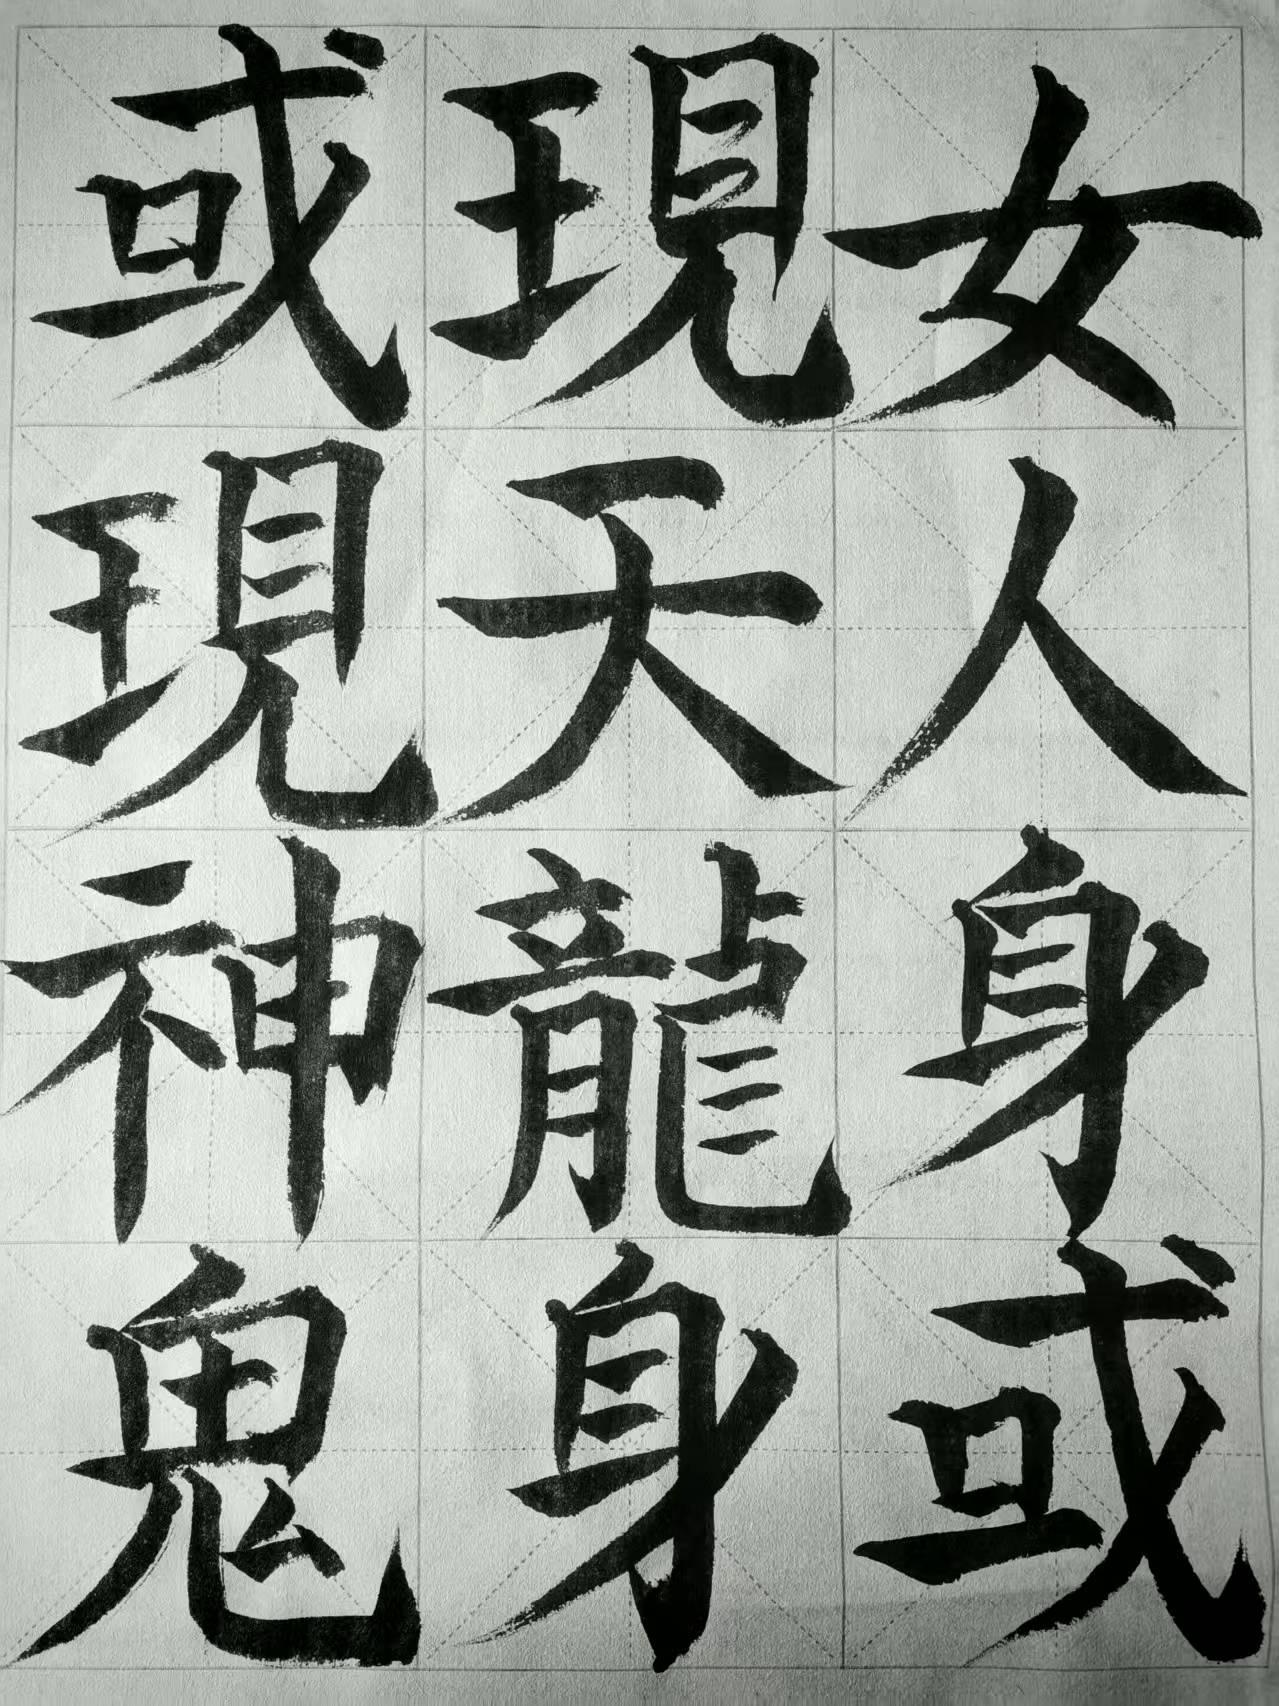 女人身或
現天龍身
或現神鬼